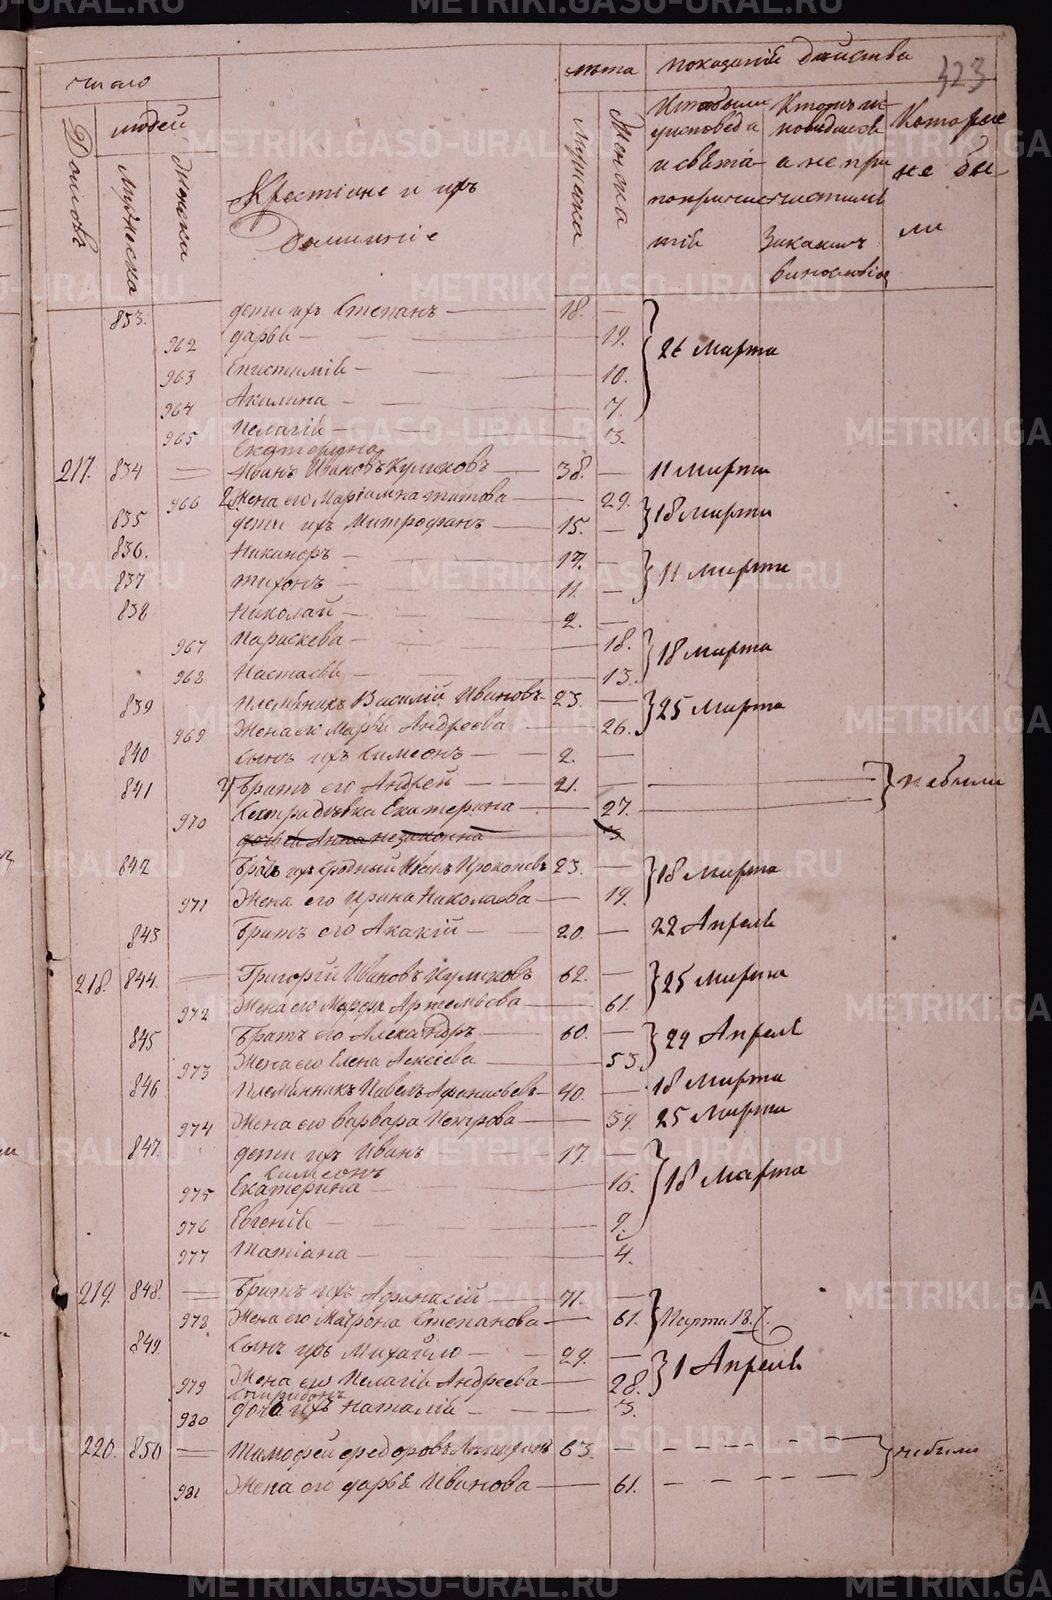 число
лѣта показаніе дѣйства
323
Домовъ
людей
Мужеска
Женска
Крестьяне и ихъ
Домашніе
Мужеска
Женска
Которые
не бы-
ли
853. дети ихъ Степанъ 18. —
962 дарья — 19.
26 Марта
963 Епистимія — 10.
964 Акилина — 7.
965 Пелагія — 3.
Екатерина
217. 834 Иванъ Ивановъ Куликовъ 38. — 11 Марта
966 2 Жена его Маріамна титова — 29.
18 Марта
835 дети ихъ Митрофанъ 15. —
836. Никаноръ — 14. —
11 Марта
837 тихонъ — 11. —
838 Николай — 2. —
967 Параскева — 18.
18 Марта
968 Настасья 13.
839 племянникъ Василій Ивановъ 23. —
25 Марта
969 Жена его Марья Андреева — 26.
840 сынъ ихъ Симеонъ — 2. —
841 Братъ его Андрей 21. не были
970 Екатерина 27.
дочь ея Анна незаконна 3.
842 Братъ ихъ сродный Иванъ Прокопьевъ 23. —
18 Марта
971 Жена его Ирина Николаева — 19.
843 Братъ его Акакій — 20. — 22 Апреля
218. 844. Григорій Ивановъ Куликовъ 62. —
25 Марта
972 Жена его Марфа Артемьева — 61.
845 Братъ его Александръ — 60. —
29 Апреля
973 Жена его Елена Алексіева 53.
846 Племянникъ Павелъ Афанасьевъ 40. — 18 Марта
974 Жена его Варвара Петрова — 39. 25 Марта
847. дети ихъ Иванъ 17. —
Симеонъ
18 Марта
975 Екатерина — 16.
976 Евгенія — 9.
977 Татіана — 4.
219. 848. Братъ ихъ Афанасій — 71. —
978 Жена его Матрона Степанова — 61. Марта 18.
849. сынъ ихъ Михайло — 29. —
1 Апреля
979 Жена его Пелагія Андреева — 28.
Спиридонъ
980 дочь ихъ Наталія — 3.
220. 850 Тимофей федоровъ 63. небыли
981 Жена его дарья Иванова — 61.
METRIKI.GASO-URAL.RU